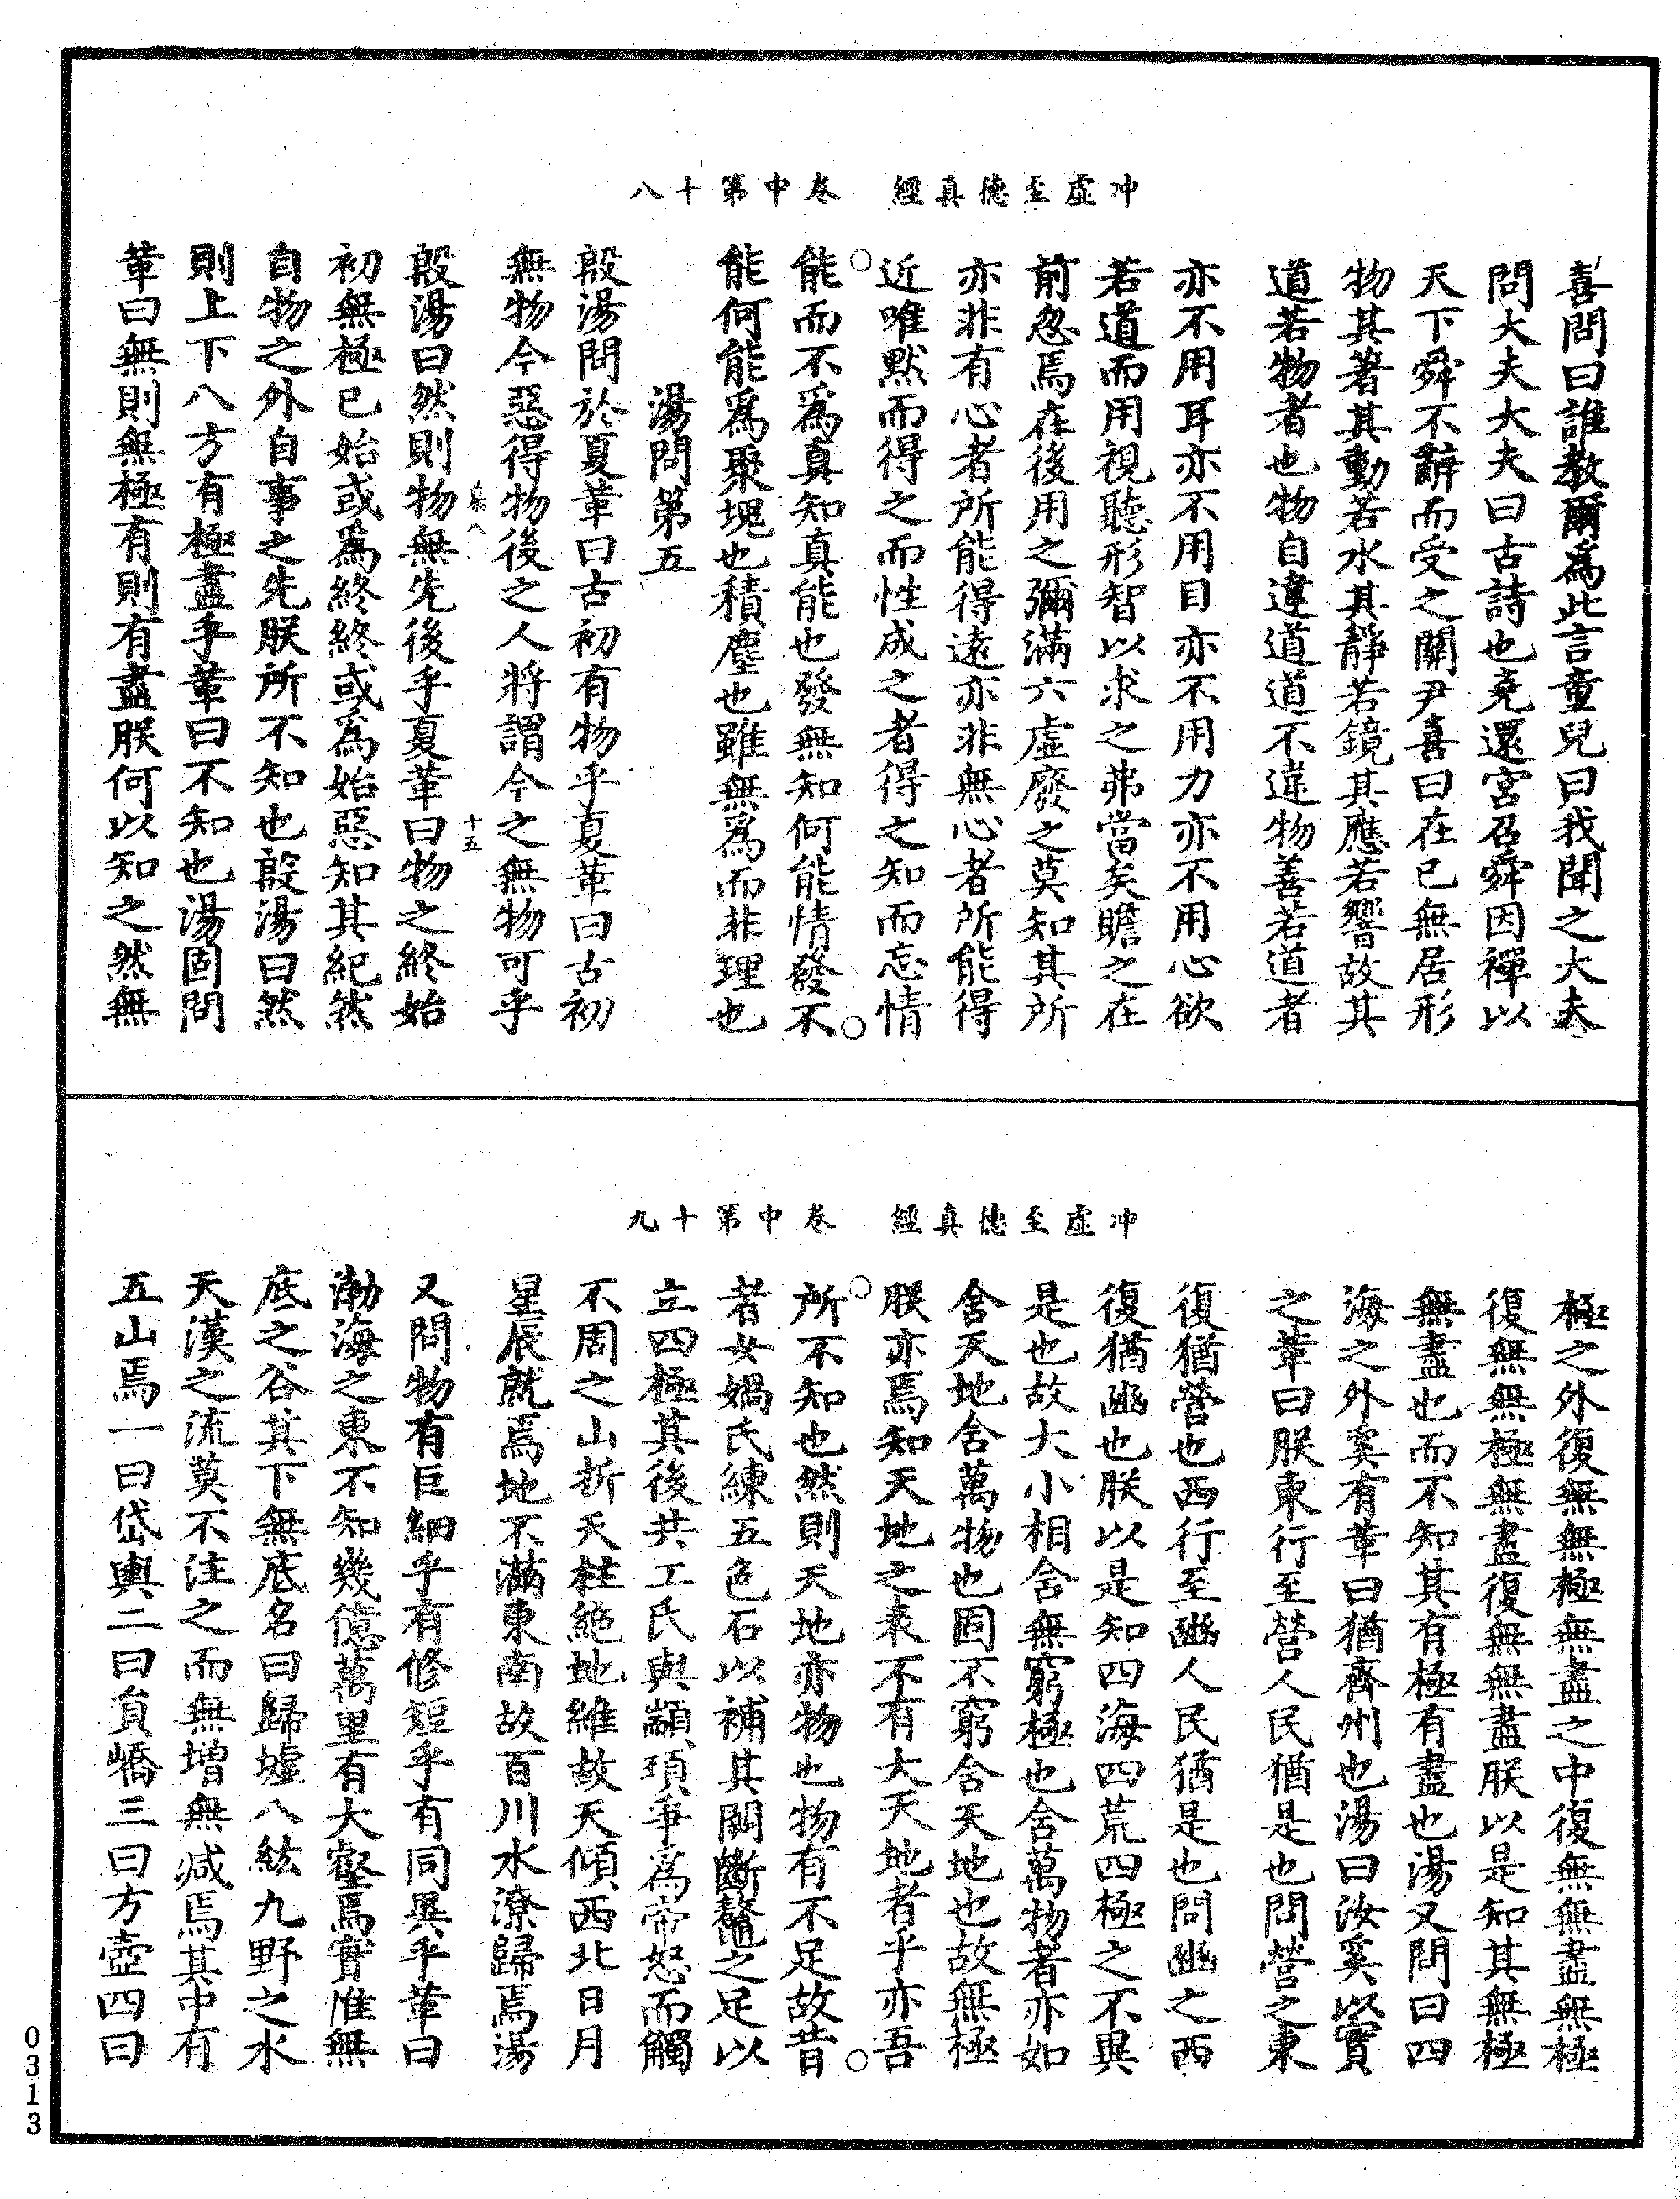 冲虛至德真經　卷中第十八
喜問曰誰教爾爲此言童兒曰我聞之大夫
問大夫大夫曰古詩也堯還宮召舜因禪以
天下舜不辭而受之關尹喜曰在已無居形
物其著其動若水其靜若鏡其應若響故其
道若物者也物自違道道不違物善若道者
亦不用耳亦不用目亦不用力亦不用心欲
若道而用視聽形智以求之弗當矣瞻之在
前忽焉在後用之彌滿六虛廢之莫知其所
亦非有心者所能得遠亦非無心者所能得
近唯默而得之而性成之者得之知而忘情
能而不爲真知真能也發無知何能情發不
能何能爲聚塊也積塵也雖無爲而非理也
湯問第五
殷湯問於夏革曰古初有物乎夏革曰古初
無物今惡得物後之人將謂今之無物可乎
十五
殷湯曰然則物無先後乎夏革曰物之終始
初無極已始或爲終終或爲始惡知其紀然
自物之外自事之先朕所不知也殷湯曰然
則上下八方有極盡乎革曰不知也湯固問
革曰無則無極有則有盡朕何以知之然無
冲虛至德真經　卷中第十九
極之外復無無極無盡之中復無無盡無極
復無無極無盡復無無盡朕以是知其無極
無盡也而不知其有極有盡也湯又問曰四
海之外奚有革曰猶齊州也湯曰汝奚以實
之革曰朕東行至營人民猶是也問營之東
復猶營也西行至豳人民猶是也問豳之西
復猶豳也朕以是知四海四荒四極之不異
是也故大小相含無窮極也含萬物者亦如
含天地含萬物也固不窮含天地也故無極
朕亦焉知天地之表不有大天地者乎亦吾
所不知也然則天地亦物也物有不足故昔
者女媧氏練五色石以補其闕斷鼇之足以
立四極其後共工氏與顓頊爭爲帝怒而觸
不周之山折天柱絶地維故天傾西北日月
星辰就焉地不滿東南故百川水潦歸焉湯
又問物有巨細乎有修短乎有同異乎革曰
渤海之東不知幾億萬里有大壑焉實惟無
底之谷其下無底名曰歸墟八紘九野之水
天漢之流莫不注之而無增無減焉其中有
五山焉一曰岱輿二曰員嶠三曰方壺四曰
0313